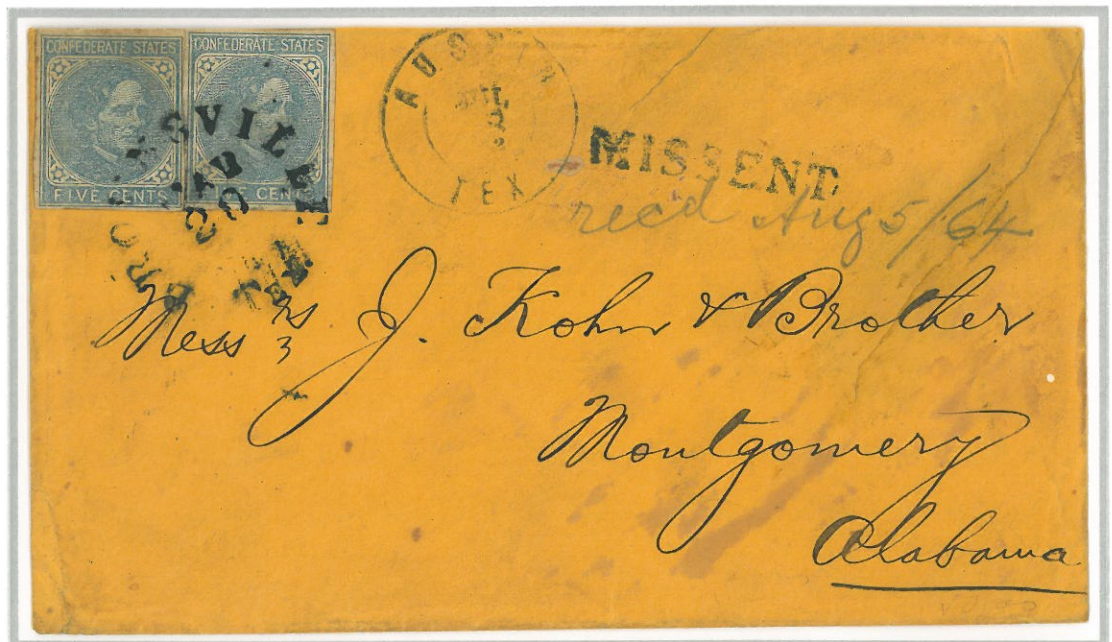 CONFEDERATE STATES CONFEDERATE STATES
FIVE CENTS CENTS
AUSTIN
TEX
MISSENT
recd Aug 5/64
Messrs J. Kohn & Brother
Montgomery
Alabama